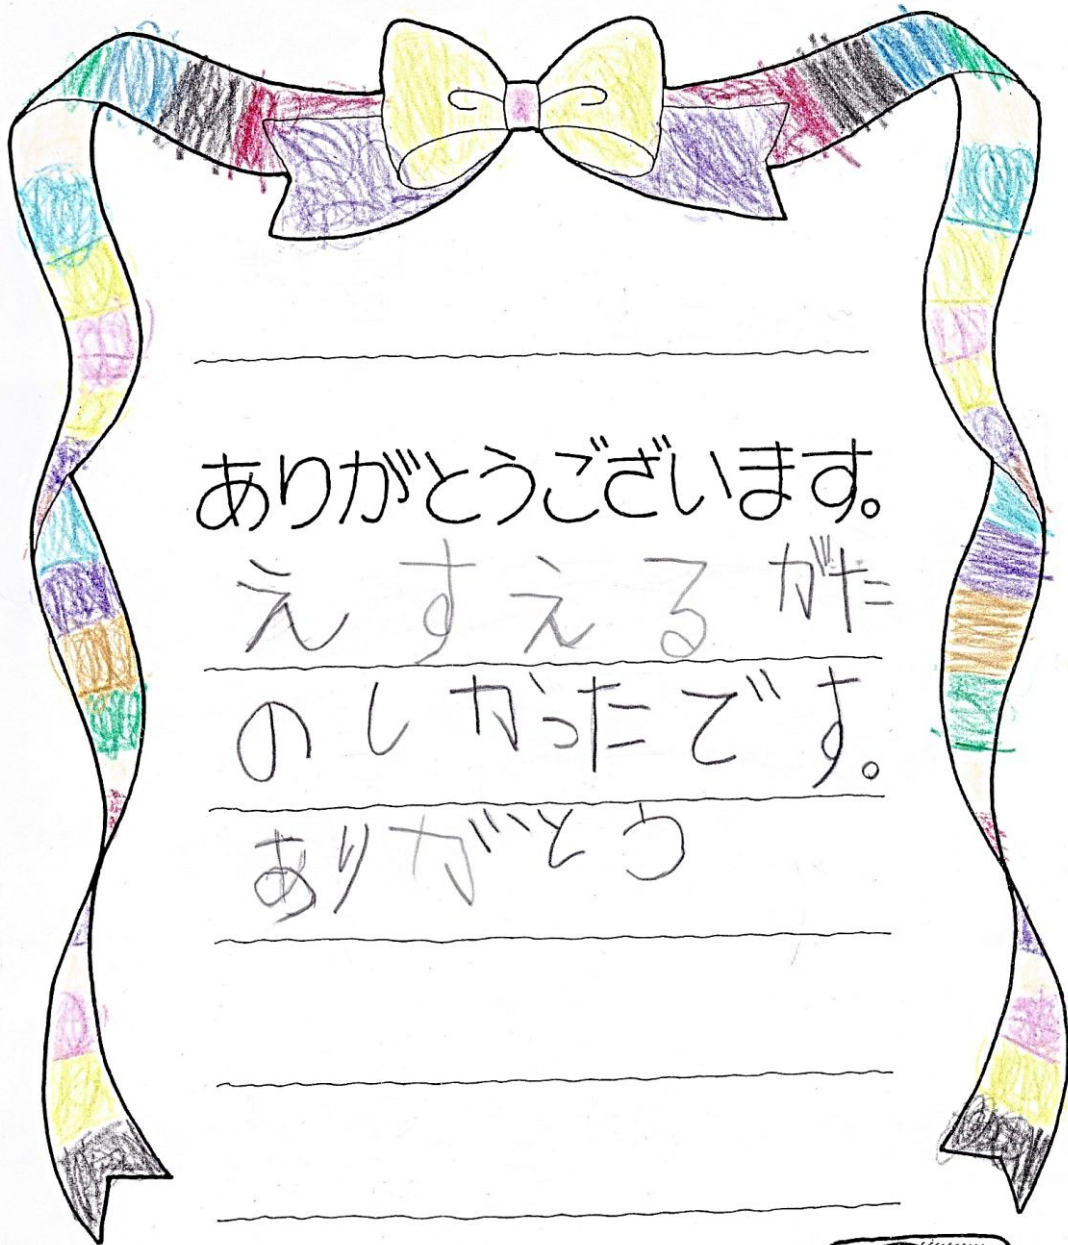 ありがとうございます。
えすえるがた
のしかったです。
ありがとう